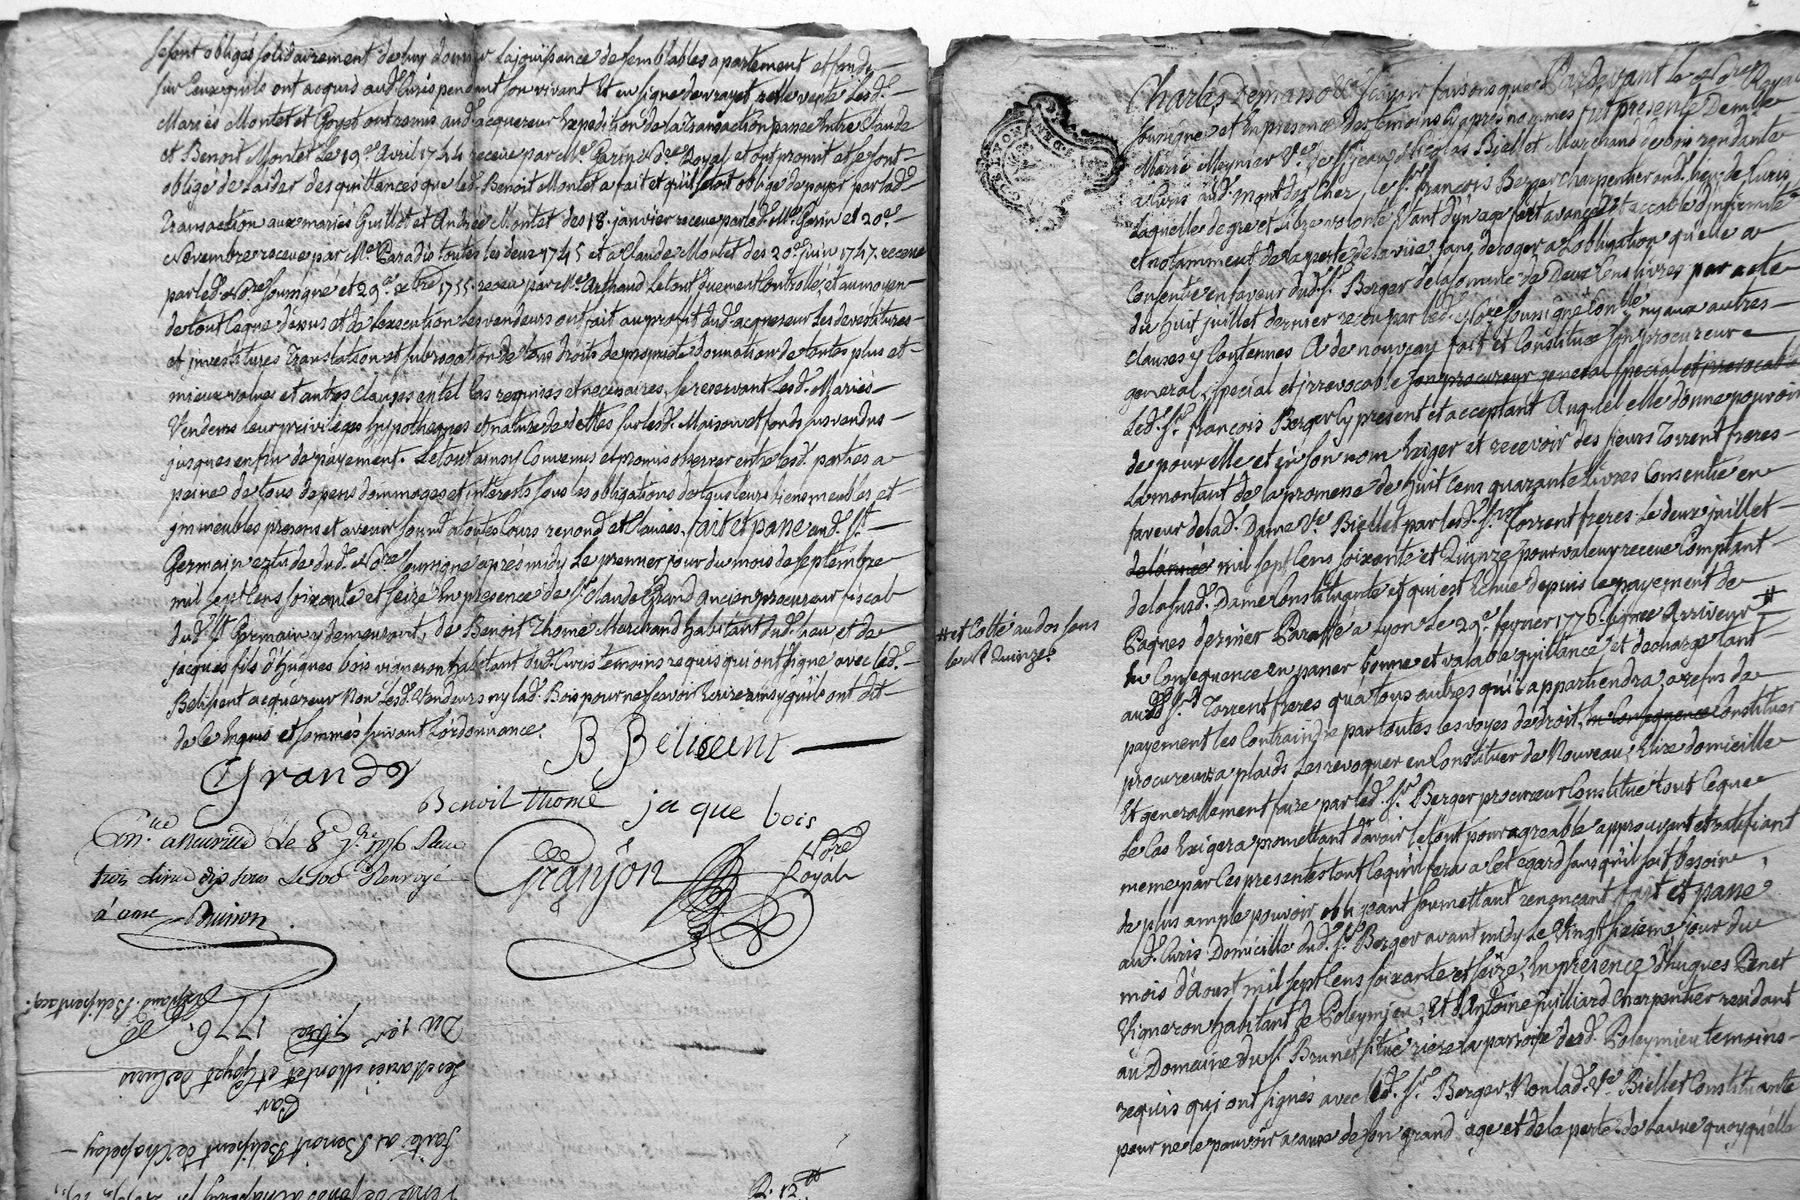 se sont obligés solidairement de luy donner la jouissance de semblables apartement et fonds
sur ceux qu'ils ont acquis aud. Curis pendant son vivant Et en signe de vraye et réelle vente lesd.
Mariés Montet et Goyet ont remis aud. acquereur Expedition de la Transaction passée Entre Claude
et Benoit Montet Le 19e. Avril 1744 receue par Me. Garin Nore Royal et ont promit et se sont
obligé de l'aider des quittances que led. Benoit Montet a fait et qu'il étoit obligé de payer par lad.
Transaction aux mariés Guillet et Andrée Montet des 18. janvier receue par led. Me. Garin et 20e.
Novembre receue par Me. Paradis toutes les deux 1745 et a Claude Montet des 20e. juin 1747. receue
par led. Nore soussigné et 29e. 1755. receu par Me. Arthaud Le tout duement Controllé, et au moyen
de tout ce que dessus et de l'execution Les vendeurs ont fait au profit dud. acquereur Les devestitures
et investitures Translation et subrogation de tous droits de proprieté donnation de toutes plus et
mieux values et autres Clauses en tel Cas requises et necessaires, se reservant Lesd. Mariés
Vendeurs leur privilèges hypotheques et nature de dettes sur lesd. Maison et fonds sus vendus
jusques en fin de payement. Le tout ainsy Convenus et promis observer entre lesd. parties a
peine de tous depens dommages et intérests sous les obligations de tous leurs biens meubles et
immeubles presens et avenir soumis a toutes Cours renond. et Clauses. fait et passé aud. St.
Germain etude dud. Nore soussigné après midy Le premier jour du mois de septembre
mil sept Cens soixante et seize En presence de Sr. Claude Grand Ancien procureur fiscal
dud. St Germain y demeurant, de Benoit Thomé Marchand habitant dud. lieu et de
jacques fils d'hugues bois vigneron habitant dud. Curis temoins requis qui ont signé avec led.
Belissent acquereur Non Lesd. Vendeurs ny lad. Bois pour ne sçavoir Ecrire ainsy qu'ils ont dit
de ce Enquis et sommés suivant L'ordonnance.
B Belissent
Grand
Benoit thomé jaque bois
Granjon Nore Royal
Con.lle a Neuville Le 8e 7bre 1776 Reçu
trois livres dix sous Le 100e Renvoyé
à anse
Du 1er 7bre 1776.
Les Mariés Montet et Goyet de Curis
Par
faite au Benoit Belissent de Chapoloy
R. 12 ₶
GEN. DE LYON
Charles Demasso Ecuyer faisons que Pardevant le Nore Royal
soussigné et En presence des temoins cy après nommés fut presente Demlle
Marie Meynier Ve. de Sr. jean Nicolas Biellet Marchand
a Curis aud. Mont d'or Chez le Sr. françois Berger Charpentier aud. lieu de Curis
Laquelle de gré et Libre volonté Etant d'un age fort avancée et accablé d'infirmité
et notamment de la perte de la vüe, sans deroger a L'obligation qu'elle a
Consentie en faveur dud. Sr. Berger de la somme de Deux Cens livres par acte
du huit juillet dernier receu par led. Nore soussigné Con.lle, ny aux autres
clauses y Contennes A de nouveau fait et Constitué son procureur
general, special et irrevocable son procureur general special et irrevocable
Led. Sr. françois Berger Cy present et acceptant Auquel elle donne pouvoir
de pour elle et En son nom Exiger et recevoir des sieurs Torrent freres
La montant de la promesse de huit Cens quarante Livres Consentie en
faveur de lad. Dame Ve Biellet par lesd. Srs Torrent freres Le deux juillet
de l'année mil sept Cens soixante et Quinze pour valeur receue Comptant
de la susd. Dame Constituante et qui est Echue depuis Le payement de
Pagnes dernier Paraffé a Lyon Le 29e. fevrier 1776. signée Arriveur #
# et Cotté au dos sous
le n° Quinze.
En Consequence en passer bonne et valable quittance et decharge tant
aud. Srs Torrent freres qu'a tous autres qu'il appartiendra, a refus de
payement les Contraindre par toutes les voyes de droit, en Consequence Constituer
procureurs a plaids Les revoquer en Constituer de Nouveau, Elire domicille
Et generallement faire par led. Sr. Berger procureur Constitué tout ce que
Le Cas Exigera promettant d'avoir le tout pour agreable approuvant et ratifiant
meme par Ces presentes tout Ce qu'il fera a Cet egard sans qu'il soit besoin
de plus ample pouvoir soumettant renonçant fait et passé
aud. Curis Domicille dud. Sr. Berger avant midy Le Vingt sixieme jour du
mois d'Aoust mil sept Cens soixante et seize, En presence d'hugues Penet
Vigneron habitant de Poleymieu, Et d'Antoine juilliard Charpentier residant
au Domaine du Sr. Brunet situé riere la paroisse dud. Poleymieu temoins
requis qui ont signés avec led. Sr. Berger, Non lad. Ve Biellet Constituante
pour ne le pouvoir a cause de son grand age et de la perte de la vue quoy qu'elle